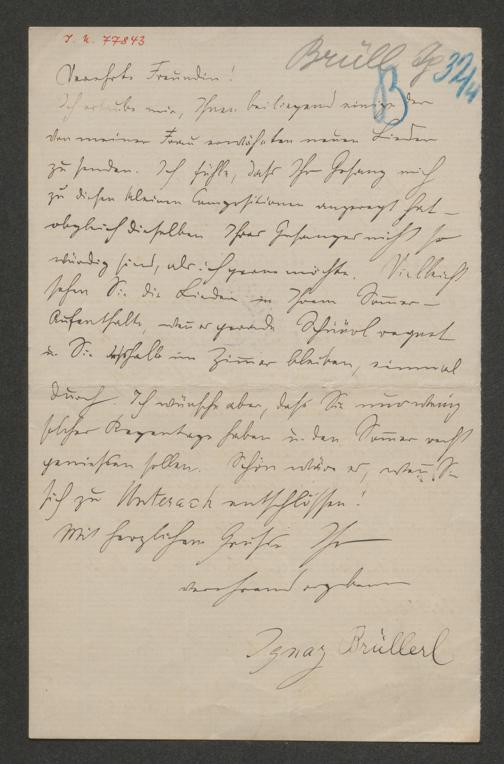 I. N. 77843
Brüll
B
32/4
Verehrte Freundin!
Ich erlaube mir, Ihnen beiliegend einige der
von meiner Frau erwähnten neuen Lieder
zu senden. Ich fühle, daſs Ihr Gesang mich
zu diesen kleinen Compositionen angeregt hat –
obgleich dieselben Ihres Gesanges nicht so
würdig sind, als ich gerne möchte. Vielleicht
sehen Sie die Lieder in Ihrem Som̅er-
Aufenthalte, wen̅ es gerade Schnürl regnet
u. Sie deſshalb im Zim̅er bleiben, einmal
durch. Ich wünsche aber, daſs Sie nur wenig
solcher Regentage haben u. den Som̅er recht
genieſsen sollen. Schön wäre es, wen̅ Sie
sich zu Unterach entschlössen!
Mit herzlichem Gruſse Ihr
verehrend ergebener
Ignaz Brüll